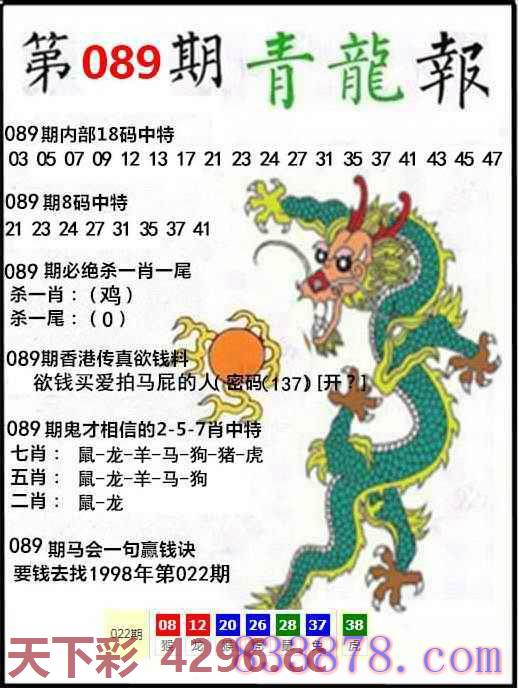 第089期青龍報
089期内部18码中特
03 05 07 09 12 13 17 21 23 24 27 31 35 37 41 43 45 47
089期8码中特
21 23 24 27 31 35 37 41
089期必绝杀一肖一尾
杀一肖：(鸡)
杀一尾：(0)
089期香港传真欲钱料
欲钱买爱拍马屁的人(密码(137)[开?]
089期鬼才相信的2-5-7肖中特
七肖：鼠-龙-羊-马-狗-猪-虎
五肖：鼠-龙-羊-马-狗
二肖：鼠-龙
089期马会一句赢钱诀
要钱去找1998年第022期
022期 08 12 20 26 28 37 38
猴 龙 猴 虎 鼠 兔 虎
天下彩 4296.cc
838878.com